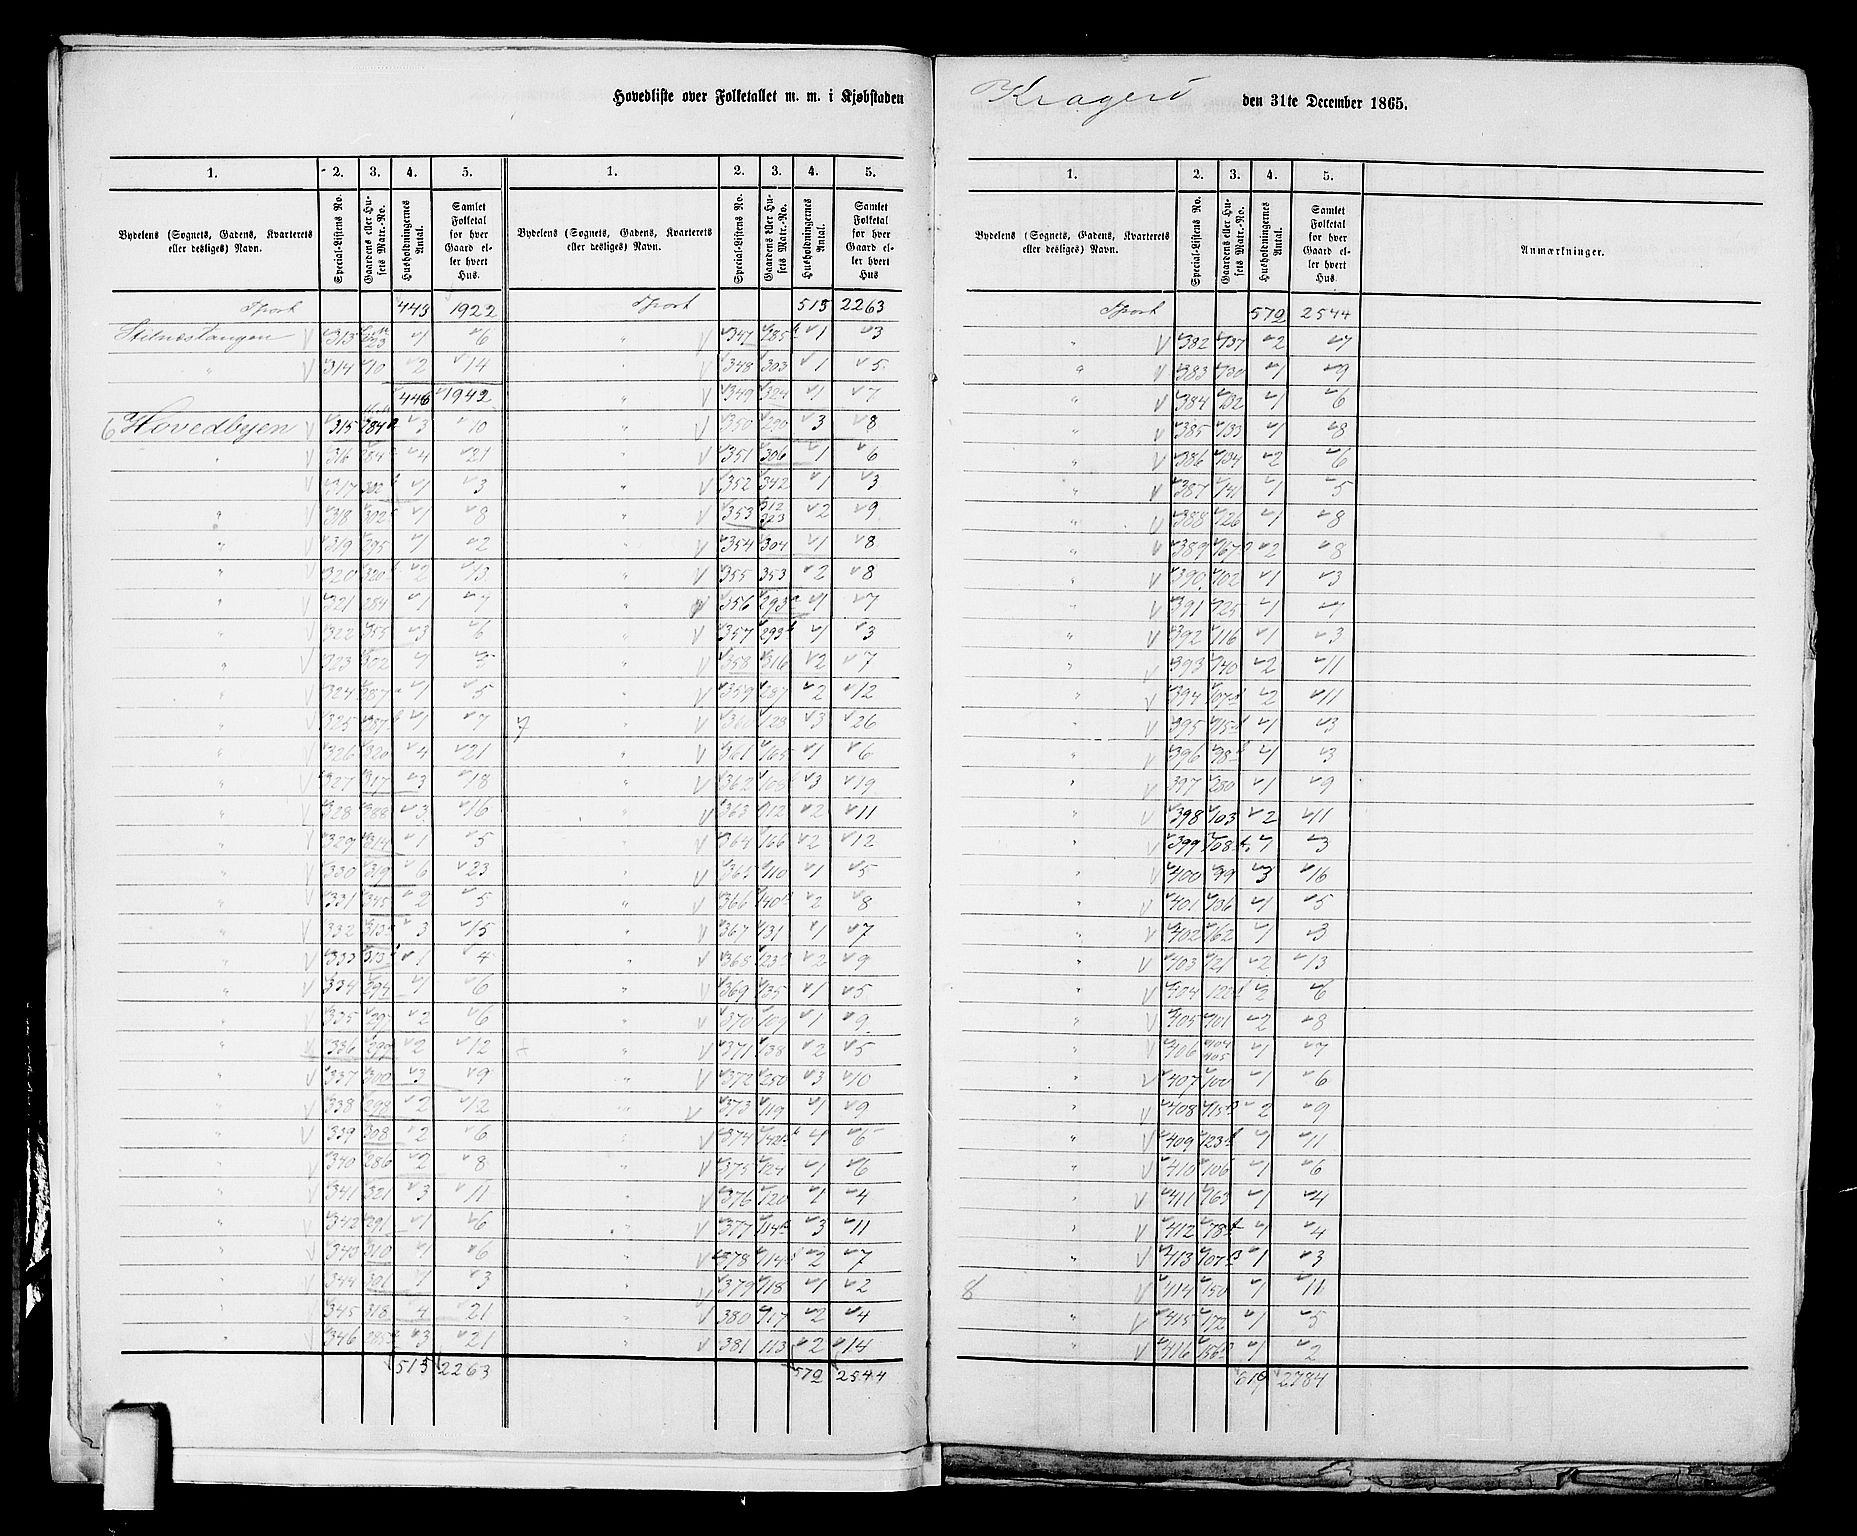 Hovedliste over Folketallet m. m. i Kjøbstaden Kragerö den 31te December 1865.
1. 2. 3. 4. 5. 1. 2. 3. 4. 5.
Bydelens (Sognets, Gadens, Kvarterets eller desliges) Navn. Special-Listens No. Gaardens eller Husets Matr.-No. Husholdningernes Antal. Samlet Folketal for hver Gaard eller hvert Hus.
Bydelens (Sognets, Gadens, Kvarterets eller desliges) Navn. Special-Listens No. Gaardens eller Husets Matr.-No. Husholdningernes Antal. Samlet Folketal for hver Gaard eller hvert Hus
Tport 443 1922
Stilnæstangen 313 1 6
" 314 10 2 14
446 1942
6 Hovedbyen 315 284 a 3 10
316 284 4 21
317 302 1 3
" 318 302 1 8
" 319 295 1 2
" 320 320 2 13
" 321 284 1 7
" 322 355 3 6
" 323 302 1 5
" 324 287 a 1 5
" 325 287 1 7
" 326 320 4 21
" 327 317 3 18
" 328 288 3 16
" 329 314 1 5
" 330 319 6 23
" 331 345 2 5
" 332 313 3 15
" 333 313 1 4
" 334 294 1 6
" 335 297 2 6
" 336 299 2 12
" 337 300 3 9
" 338 298 2 12
" 339 308 2 6
" 340 286 2 8
" 341 321 3 11
" 342 291 1 6
" 343 310 1 6
" 344 301 1 3
" 345 318 4 21
" 346 285 3 21
515 2263
Tport 515 2263
" 347 285 1 3
" 348 303 1 5
" 349 324 1 7
" 350 290 3 8
" 351 306 1 6
" 352 342 1 3
" 353 312 323 2 9
" 354 304 1 8
" 355 353 2 8
" 356 293 1 7
" 357 293 1 3
" 358 316 2 7
" 359 287 2 12
7 " 360 128 3 26
" 361 165 1 6
" 362 108 3 19
" 363 112 2 11
" 364 166 2 12
" 365 110 1 5
" 366 140 2 8
" 367 131 1 7
" 368 123 2 9
" 369 135 1 5
" 370 109 1 9
" 371 138 2 5
" 372 250 3 10
" 373 119 1 9
" 374 142 1 6
" 375 124 1 6
" 376 120 1 4
" 377 114 3 11
" 378 114 2 7
" 379 118 1 2
" 380 117 2 4
" 381 113 2 14
572 2544
1. 2. 3. 4. 5.
Bydelens (Sognets, Gadens, Kvarterets eller desliges) Navn. Special-Listens No. Gaardens eller Husets Matr.-No. Husholdningernes Antal. Samlet Folketal for hver Gaard eller hvert Hus. Anmærkninger.
Tport 572 2544
" 382 137 2 7
" 383 130 1 9
" 384 132 1 6
" 385 133 1 8
" 386 134 2 6
" 387 141 1 5
" 388 126 1 8
" 389 167 2 8
" 390 102 1 3
" 391 125 1 7
" 392 116 1 3
" 393 140 2 11
" 394 107 2 11
" 395 115 1 3
" 396 98 1 3
" 397 280 1 9
" 398 103 2 11
" 399 108 1 3
" 400 99 3 16
" 401 136 1 5
" 402 162 1 3
" 403 121 2 13
" 404 122 2 6
" 405 101 2 8
" 406 104 105 1 7
" 407 100 1 6
" 408 115 2 9
" 409 123 1 11
" 410 106 1 6
" 411 163 1 4
" 412 78 1 4
" 413 107 1 3
8 " 414 150 1 11
" 415 172 1 5
" 416 156 1 2
619 2784